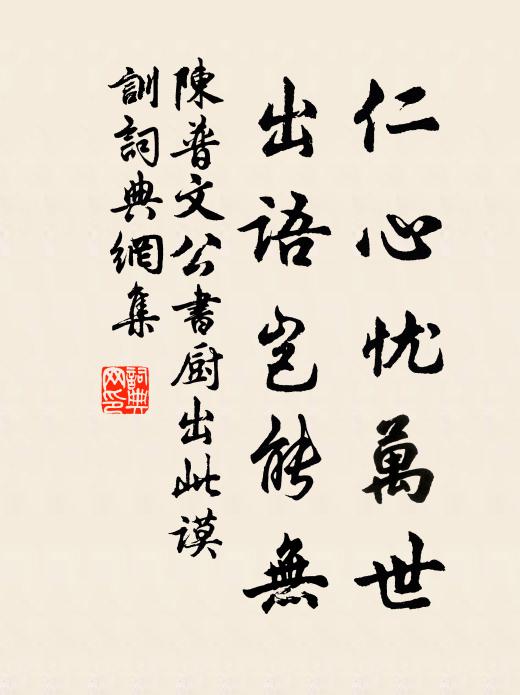 仁心忧萬世
出語岂能無
陳普文公書厨出此謨
訓詞典網集
詞典网印